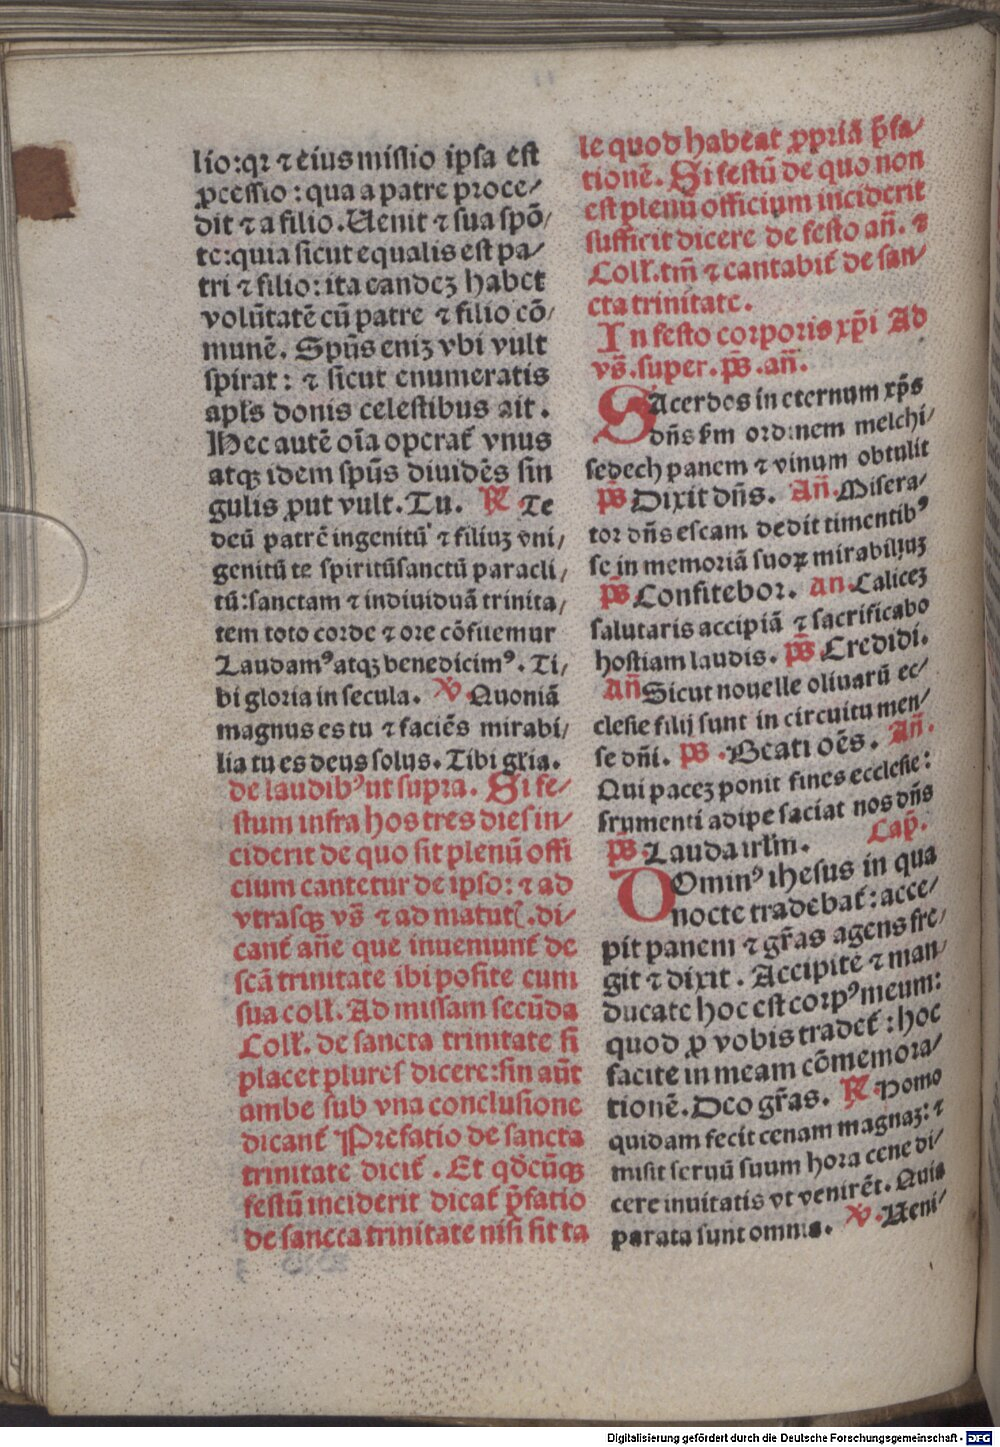 lio:qꝛ ⁊ eius missio ipsa est
ꝓcessio : qua a patre proce/
dit ⁊ a filio. Uenit ⁊ sua spō/
te:quia sicut equalis est pa/
tri ⁊ filio: ita eandez habet
volūtatē cū patre ⁊ filio cō/
munē. Spūs eniz vbi vult
spirat: ⁊ sicut enumeratis
apl's donis celestibus ait.
Hec autē oīa operat᷑ vnus
atqꝫ idem spūs diuidēs sin
gulis ꝓut vult. Tu. ℟. Te
deū patrē ingenitū ⁊ filiuz vni/
genitū te spiritūsanctū paracli/
tū:sanctam ⁊ indiuiduā trinita/
tem toto corde ⁊ ore cōfitemur
Laudamꝰ atqꝫ benedicimꝰ. Ti/
bi gloria in secula. ℣. Quoniā
magnus es tu ⁊ faciēs mirabi/
lia tu es deus solus. Tibi gr̄ia.
de laudibꝰ ut supra. Si fe/
stum infra hos tres dies in/
ciderit de quo sit plenū offi
cium cantetur de ipso: ⁊ ad
vtrasqꝫ vs̄ ⁊ ad matut᷑. di/
cant᷑ añe que inueniunt᷑ de
scā trinitate ibi posite cum
sua coll'. Ad missam secūda
Coll'. de sancta trinitate si
placet plures dicere:sin aūt
ambe sub vna conclusione
dicant᷑ Prefatio de sancta
trinitate dicit᷑. Et qd̄cūqꝫ
festū inciderit dicat᷑ p̄fatio
de sancta trinitate nisi sit ta
le quod habeat ꝓpriā p̄fa/
tionē. Si festū de quo non
est plenū officium inciderit
sufficit dicere de festo añ. ⁊
Coll'. tm̄ ⁊ cantabit᷑ de san/
cta trinitate.
In festo corporis xp̄i Ad
vs̄. super. ps̄. añ.
SAcerdos in eternum xp̄s
dñs s'm ordinem melchi/
sedech panem ⁊ vinum obtulit
ps̄ Dixit dñs. Añ. Misera/
tor dñs escam dedit timentibꝰ
se in memoriā suoꝝ mirabiliuz
ps̄ Confitebor. an. Calicez
salutaris accipiā ⁊ sacrificabo
hostiam laudis. ps̄ Credidi.
Añ Sicut nouelle oliuarū ec/
clesie filij sunt in circuitu men/
se dñi. ps̄. Beati oēs. Añ.
Qui pacez ponit fines ecclesie:
frumenti adipe saciat nos dñs
ps̄. Lauda irl'm. Cap̄.
DOminꝰ ihesus in qua
nocte tradebat᷑: acce/
pit panem ⁊ gr̄as agens fre/
git ⁊ dixit. Accipite ⁊ man/
ducate hoc est corpꝰ meum:
quod ꝓ vobis tradet᷑: hoc
facite in meam cōmemora/
tionē. Deo gr̄as. ℟. Homo
quidam fecit cenam magnaz: ⁊
misit seruū suum hora cene di/
cere inuitatis vt venirēt. Quia
parata sunt omnia. ℣. Ueni/
Digitalisierung gefördert durch die Deutsche Forschungsgemeinschaft - DFG